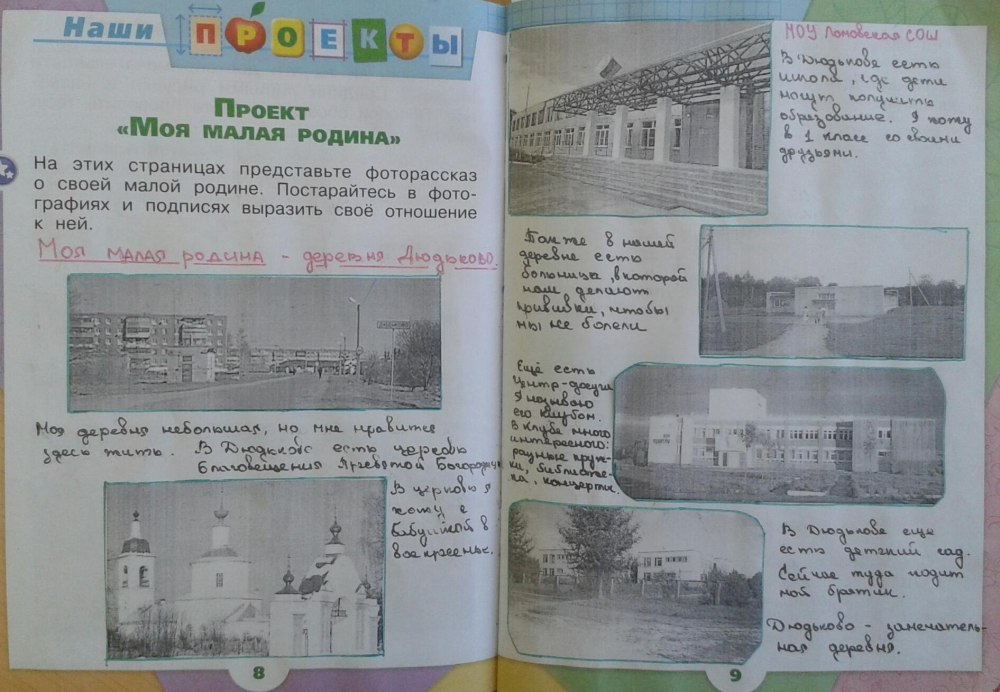 Наши ПРОЕКТЫ
ПРОЕКТ
«МОЯ МАЛАЯ РОДИНА»
На этих страницах представьте фоторассказ
о своей малой родине. Постарайтесь в фото-
графиях и подписях выразить своё отношение
к ней.
Моя малая родина - деревня Дюдьково.
Моя деревня небольшая, но мне нравится
здесь жить. В Дюдьково есть церковь
Благовещения Пресвятой Богородицы
В церковь я
хожу с
бабушкой в
воскресенье.
8
МОУ Ломовская СОШ
В Дюдькове есть
школа, где дети
могут получить
образование. Я хожу
в 1 класс со своими
друзьями.
Также в нашей
деревне есть
больница, в которой
нам делают
прививки, чтобы
мы не болели
Ещё есть
Центр-досуга
Я называю
его клубом.
В клубе много
интересного:
разные круж-
ки, библиоте-
ка, концерты.
В Дюдькове еще
есть детский сад.
Сейчас туда ходит
мой братик.
Дюдьково - замечатель-
ная деревня.
9